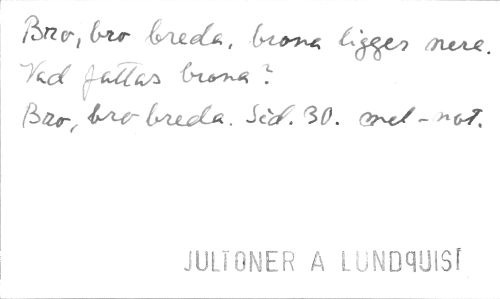 Bro, bro breda, brona ligges nere.
Vad fattas brona?
Bro, bro breda. Sid. 30. mel-not.
JULTONER A LUNDQUIST